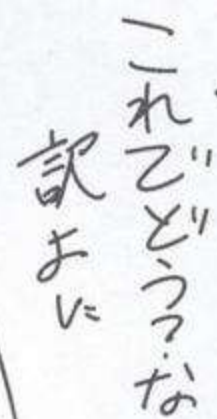 これでどう?な
訳よに